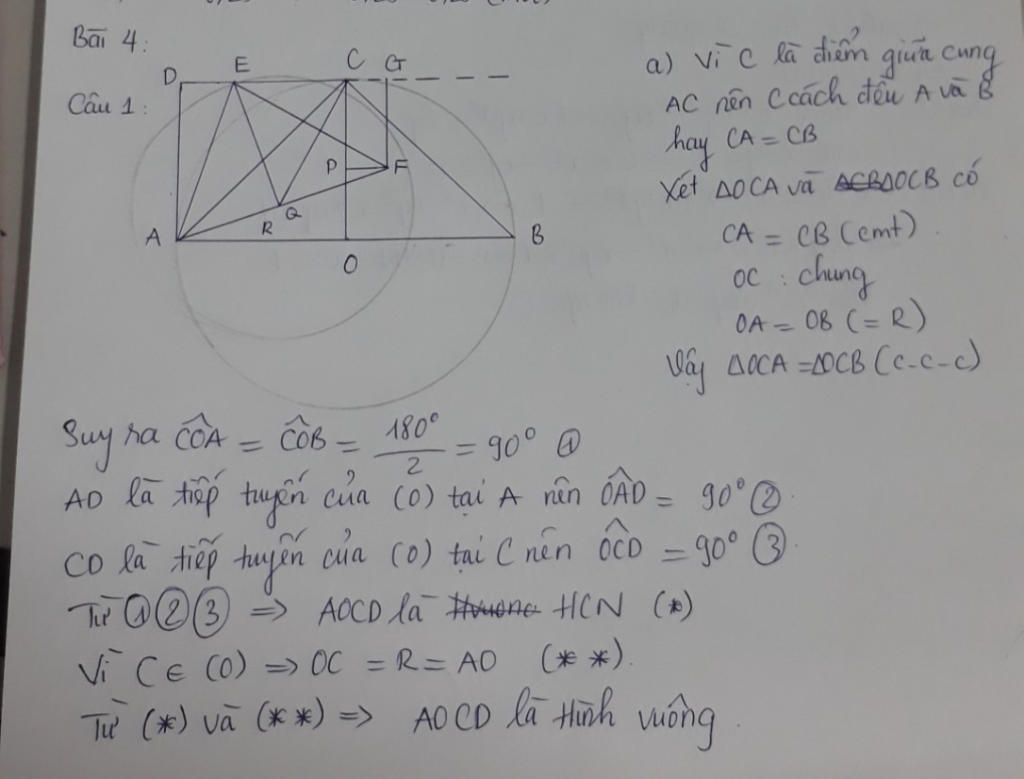 Bài 4:
Câu 1:
D E C G
P F
R Q
A B
O
a) Vì C là điểm giữa cung
AC nên C cách đều A và B
hay CA = CB
Xét ΔOCA và ΔOCB có
CA = CB (cmt).
OC : chung
OA = OB (= R)
Vậy ΔOCA = ΔOCB (c-c-c)
Suy ra \widehat{COA} = \widehat{COB} = \frac{180°}{2} = 90° ①
AD là tiếp tuyến của (O) tại A nên \widehat{OAD} = 90° ②.
CD là tiếp tuyến của (O) tại C nên \widehat{OCD} = 90° ③.
Từ ①②③ => AOCD là HCN (*)
Vì C ∈ (O) => OC = R = AO (**).
Từ (*) và (**) => AOCD là Hình vuông.